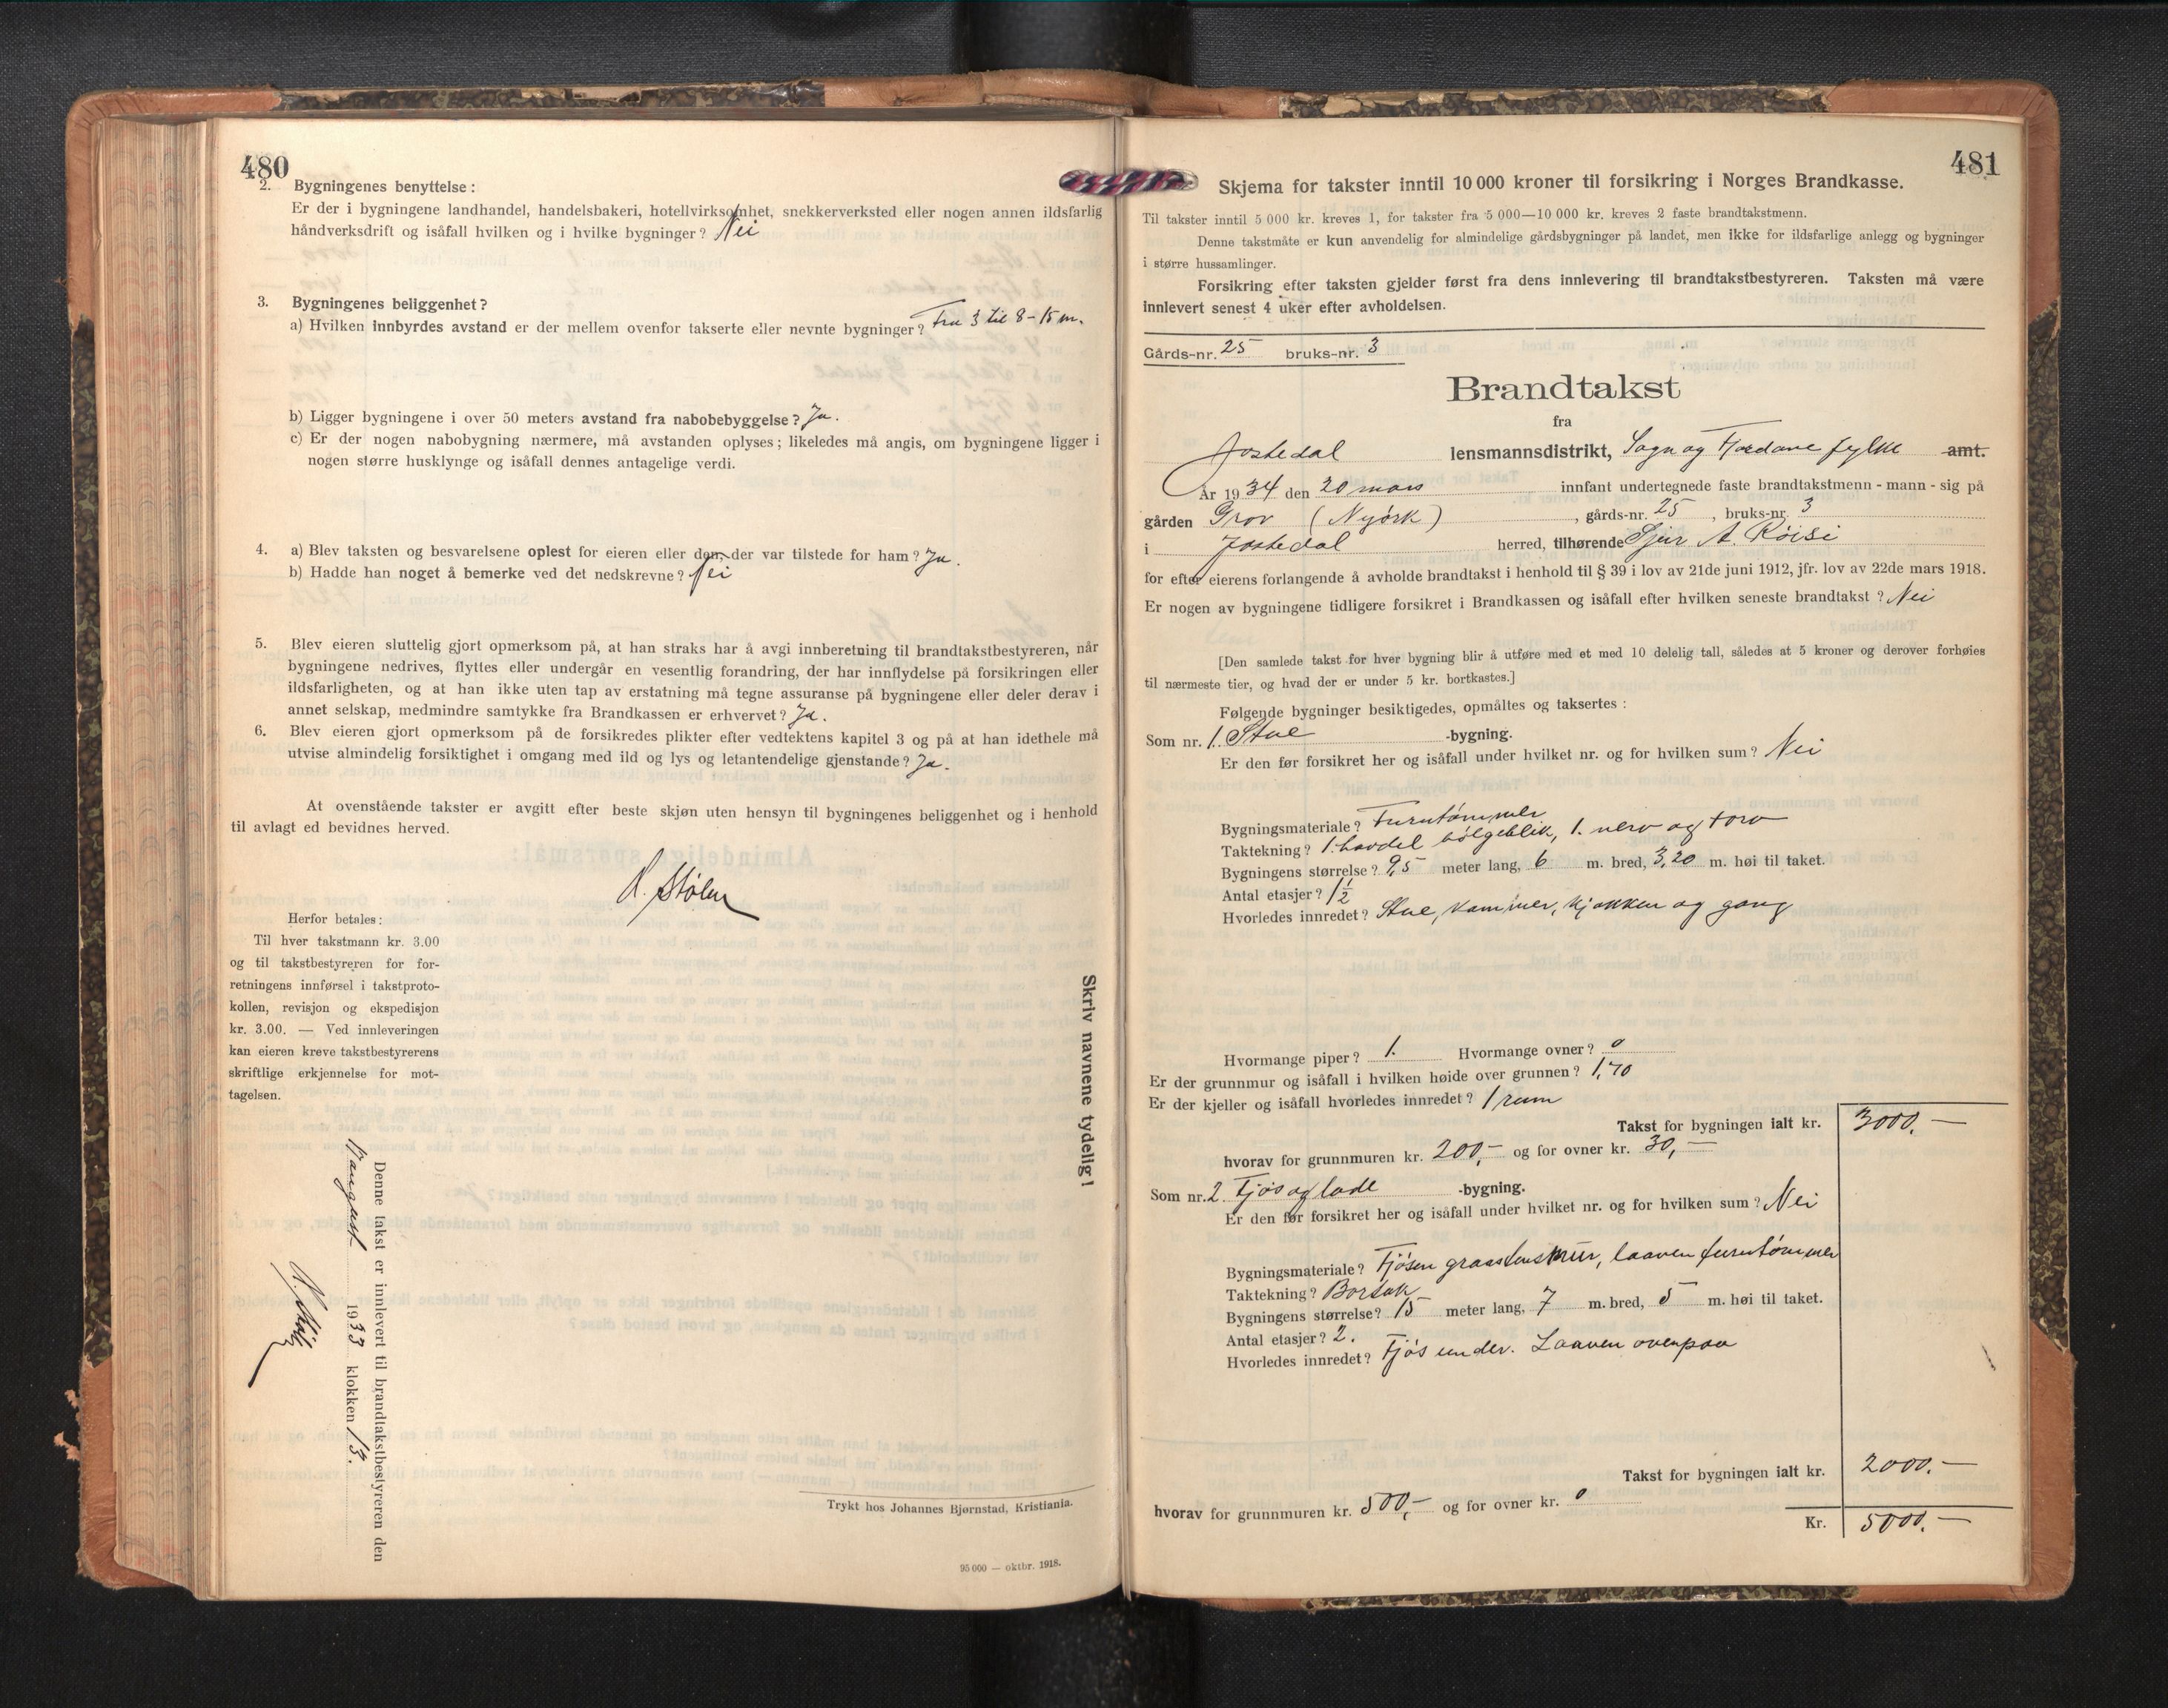 480
2. Bygningenes benyttelse:
Er der i bygningene landhandel, handelsbakeri, hotellvirksomhet, snekkerverksted eller nogen annen ildsfarlig
håndverksdrift og isåfall hvilken og i hvilke bygninger? Nei
3. Bygningenes beliggenhet?
a) Hvilken innbyrdes avstand er der mellem ovenfor takserte eller nevnte bygninger? Fra 3 til 8-15 m.
b) Ligger bygningene i over 50 meters avstand fra nabobebyggelse? Ja.
c) Er der nogen nabobygning nærmere, må avstanden oplyses; likeledes må angis, om bygningene ligger i
nogen større husklynge og isåfall dennes antagelige verdi.
4. a) Blev taksten og besvarelsene oplest for eieren eller den, der var tilstede for ham? Ja.
b) Hadde han noget å bemerke ved det nedskrevne? Nei
5. Blev eieren sluttelig gjort opmerksom på, at han straks har å avgi innberetning til brandtakstbestyreren, når
bygningene nedrives, flyttes eller undergår en vesentlig forandring, der har innflydelse på forsikringen eller
ildsfarligheten, og at han ikke uten tap av erstatning må tegne assuranse på bygningene eller deler derav i
annet selskap, medmindre samtykke fra Brandkassen er erhvervet? Ja.
6. Blev eieren gjort opmerksom på de forsikredes plikter efter vedtektens kapitel 3 og på at han idethele må
utvise almindelig forsiktighet i omgang med ild og lys og letantendelige gjenstande? Ja.
At ovenstående takster er avgitt efter beste skjøn uten hensyn til bygningenes beliggenhet og i henhold
til avlagt ed bevidnes herved.
Stølen
Herfor betales:
Til hver takstmann kr. 3.00
og til takstbestyreren for for-
retningens innførsel i takstproto-
kollen, revisjon og ekspedisjon
kr. 3.00. — Ved innleveringen
kan eieren kreve takstbestyrerens
skriftlige erkjennelse for mot-
tagelsen.
Skriv navnene tydelig!
Denne takst er innlevert til brandtakstbestyreren den
august 1933 klokken 13.
Trykt hos Johannes Bjørnstad, Kristiania.
95 000 — oktbr. 1918.
481
Skjema for takster inntil 10 000 kroner til forsikring i Norges Brandkasse.
Til takster inntil 5 000 kr. kreves 1, for takster fra 5 000—10 000 kr. kreves 2 faste brandtakstmenn.
Denne takstmåte er kun anvendelig for almindelige gårdsbygninger på landet, men ikke for ildsfarlige anlegg og bygninger
i større hussamlinger.
Forsikring efter taksten gjelder først fra dens innlevering til brandtakstbestyreren. Taksten må være
innlevert senest 4 uker efter avholdelsen.
Gårds-nr. 25 bruks-nr. 3
Brandtakst
fra
Jostedal lensmannsdistrikt, Sogn og Fjordane fylke amt.
År 1934 den 20 mars innfant undertegnede faste brandtakstmenn - mann - sig på
gården Grov (Nyørk), gårds-nr. 25, bruks-nr. 3
i Jostedal herred, tilhørende Sjur A. Røisi
for efter eierens forlangende å avholde brandtakst i henhold til § 39 i lov av 21de juni 1912, jfr. lov av 22de mars 1918.
Er nogen av bygningene tidligere forsikret i Brandkassen og isåfall efter hvilken seneste brandtakst? Nei
[Den samlede takst for hver bygning blir å utføre med et med 10 delelig tall, således at 5 kroner og derover forhøies
til nærmeste tier, og hvad der er under 5 kr. bortkastes.]
Følgende bygninger besiktigedes, opmåltes og taksertes:
Som nr. 1. Stue -bygning.
Er den før forsikret her og isåfall under hvilket nr. og for hvilken sum? Nei
Bygningsmateriale? Furutømmer
Taktekning? 1. havdel bølgeblik, 1. nerv og torv
Bygningens størrelse? 9,5 meter lang, 6 m. bred, 3,20 m. høi til taket.
Antal etasjer? 1½
Hvorledes innredet? Stue, kammer, kjøkken og gang
Hvormange piper? 1. Hvormange ovner? 0
Er der grunnmur og isåfall i hvilken høide over grunnen? 1,70
Er der kjeller og isåfall hvorledes innredet? 1 rum
Takst for bygningen ialt kr. 3000.—
hvorav for grunnmuren kr. 200,— og for ovner kr. 30,—
Som nr. 2 Fjøs og lade -bygning.
Er den før forsikret her og isåfall under hvilket nr. og for hvilken sum? Nei
Bygningsmateriale? Fjøsen graastensmur, laaven furutømmer
Taktekning? Bortak
Bygningens størrelse? 15 meter lang, 7 m. bred, 5 m. høi til taket.
Antal etasjer? 2.
Hvorledes innredet? Fjøs under. Laaven ovenpaa
Takst for bygningen ialt kr. 2000.—
hvorav for grunnmuren kr. 500,— og for ovner kr. 0
Kr. 5000.—